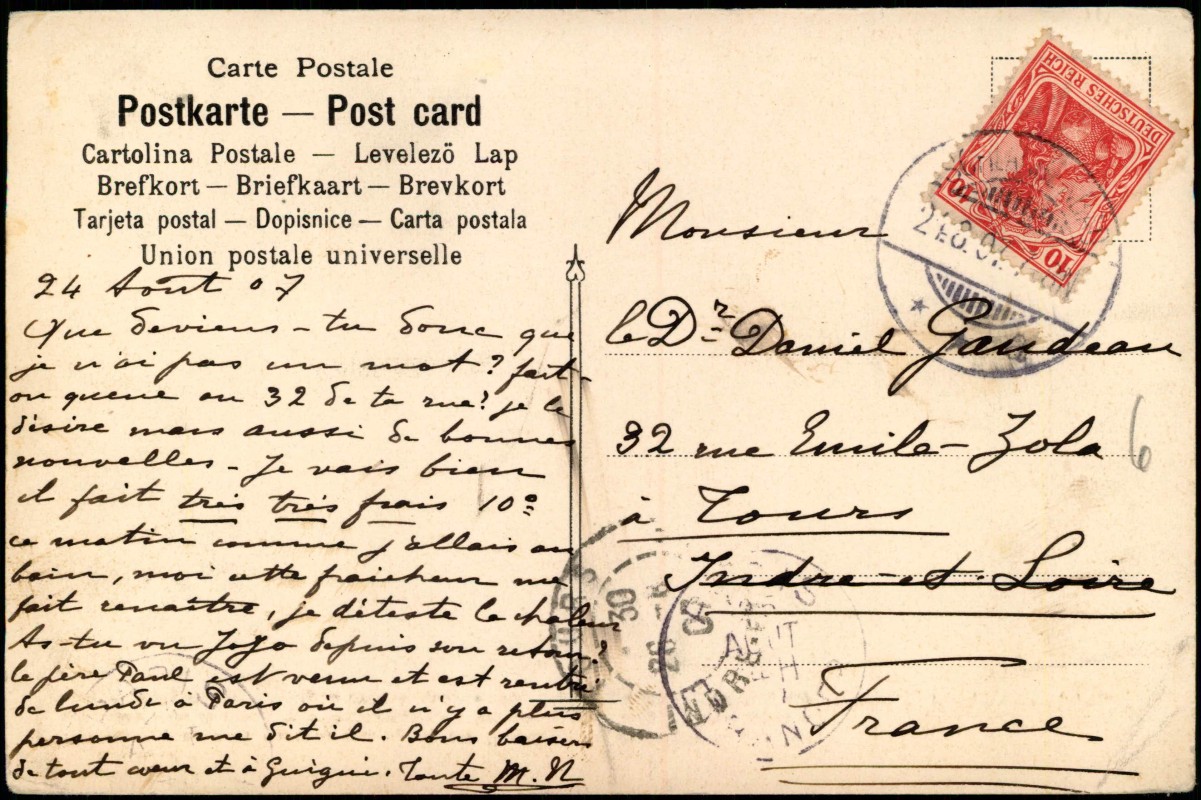 Carte Postale
Postkarte — Post card
Cartolina Postale — Levelezö Lap
Brefkort — Briefkaart — Brevkort
Tarjeta postal — Dopisnice — Carta postala
Union postale universelle
24 Aout 07
Que deviens-tu donc que
je n'ai pas un mot? fait-
on queue au 32 de ta rue? je le
désire mais aussi de bonnes
nouvelles - Je vais bien
il fait très très frais 10°
ce matin comme j'allais au
bain, moi cette fraicheur me
fait renaître, je déteste la chaleur
As-tu vu Jojo depuis son retour?
le père Paul est venu et est rentré
de lundi à Paris où il n'y a plus
personne me dit il. Bons baisers
de tout cœur et à Guigui. Tante M.N
DEUTSCHES REICH
10
10
Monsieur
le Dr Daniel Gaudeau
32 rue Emile-Zola
à Tours
Indre-et-Loire
France
6
30
26